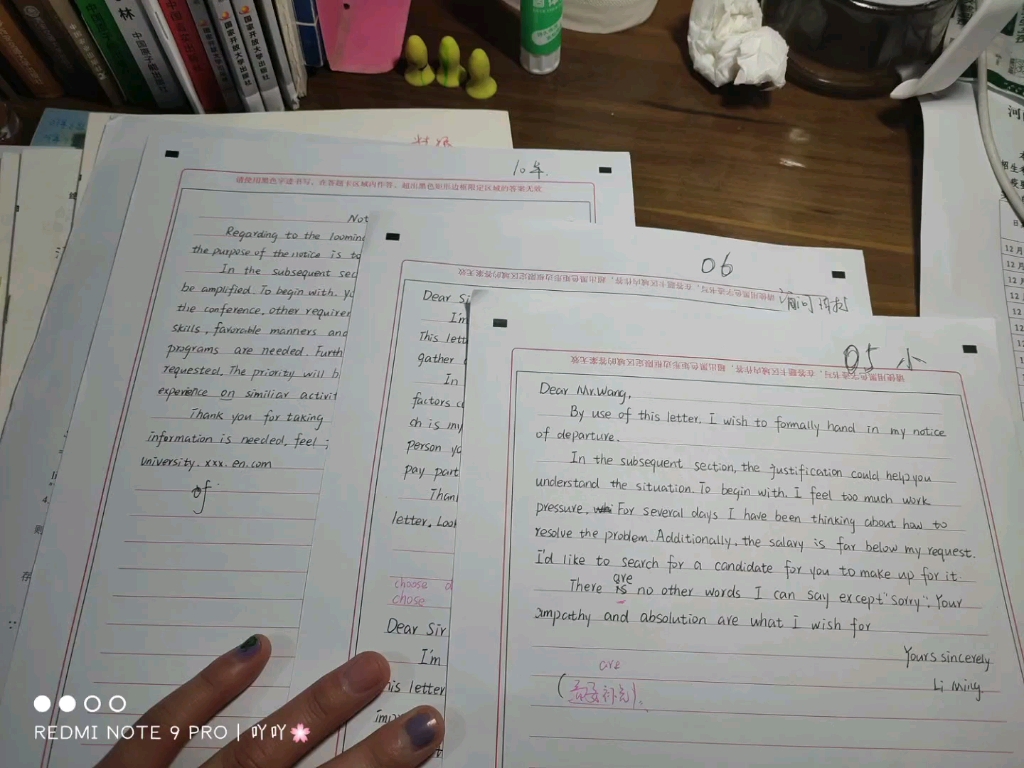 国家开放大学出版社
国家开放大学出版社
10年
请使用黑色字迹书写，在答题卡区域内作答，超出黑色矩形边框限定区域的答案无效
Not
Regarding to the looming
the purpose of the notice is to
In the subsequent sec
be amplified. To begin with. yo
the conference, other requirer
skills, favorable manners and
programs are needed. Furth
requested. The priority will b
experience on similiar activit
Thank you for taking
information is needed, feel
university. xxx. en.com
of
06
Dear Si
I'm
This lett
gather
In
factors c
ch is my
person yo
pay part
Than
letter. Loo
choose
chose
Dear Sir
I'm
his letter
05 小
Dear Mr.Wang,
By use of this letter, I wish to formally hand in my notice
of departure.
In the subsequent section, the justification could help you
understand the situation. To begin with. I feel too much work
pressure. For several days I have been thinking about how to
resolve the problem. Additionally, the salary is far below my request.
I'd like to search for a candidate for you to make up for it.
are
There is no other words I can say except "sorry". Your
ympathy and absolution are what I wish for
Yours sincerely
Li Ming
are
REDMI NOTE 9 PRO | 吖吖🌸
12月
12月
12月